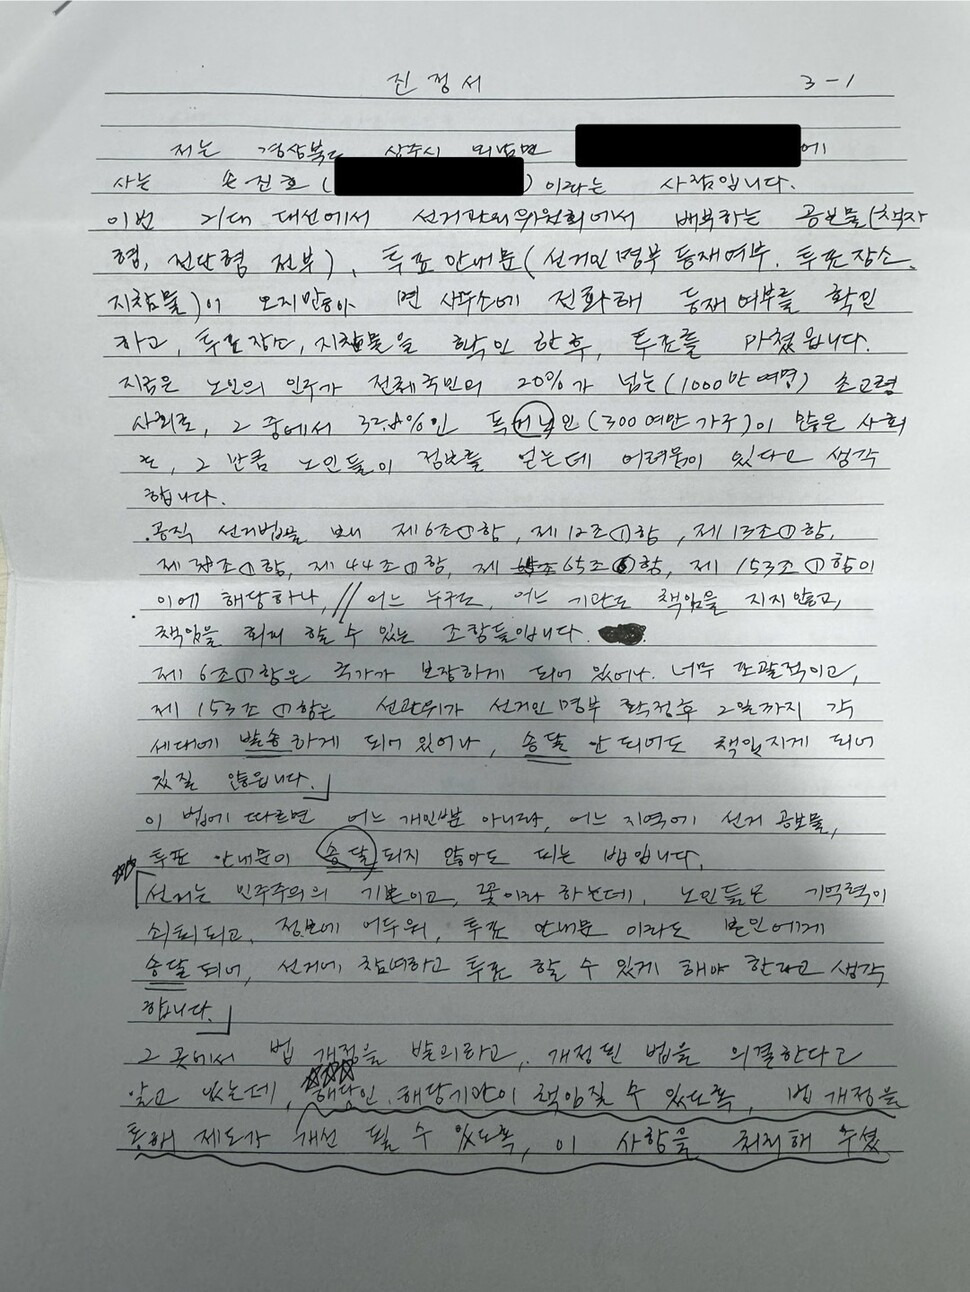 진정서 3-1
저는 경상북도 상주시 외남면 에
사는 손진호 ( ) 이라는 사람입니다.
이번 21대 대선에서 선거관리위원회에서 배부하는 공보물(책자
형, 전단형 전부), 투표안내문(선거인명부 등재여부, 투표장소,
지참물)이 오지않아 면사무소에 전화해 등재여부를 확인
하고, 투표장소, 지참물을 확인한후, 투표를 마쳤읍니다.
지금은 노인의 인구가 전체국민의 20%가 넘는(1000만여명) 초고령
사회로, 그 중에서 32.8%인 독거노인(300여만가구)이 많은 사회
로, 그 만큼 노인들이 정보를 얻는데 어려움이 있다고 생각
합니다.
공직 선거법을 보니 제6조①항, 제12조①항, 제13조①항,
제 조①항, 제44조①항, 제 65조⑥항, 제153조①항이
이에 해당하나, // 어느 누구도, 어느 기관도 책임을 지지않고,
책임을 회피 할 수 있는 조항들입니다.
제6조①항은 국가가 보장하게 되어 있으나 너무 포괄적이고,
제153조①항은 선관위가 선거인명부 확정후 2일까지 각
세대에 발송하게 되어있으나, 송달 안되어도 책임지게 되어
있질 않읍니다.」
이 법에 따르면 어느 개인뿐 아니라, 어느 지역에 선거 공보물,
투표 안내문이 송달되지 않아도 되는 법입니다.
「선거는 민주주의의 기본이고, 꽃이라 하는데, 노인들은 기억력이
쇠퇴되고, 정보에 어두워, 투표 안내문 이라도 본인에게
송달되어, 선거에 참여하고 투표 할 수 있게 해야 한다고 생각
합니다.」
그 곳에서 법 개정을 발의하고, 개정된 법을 의결한다고
알고 있는데, 해당인, 해당기관이 책임질 수 있도록, 법 개정을
통해 제도가 개선 될 수 있도록, 이 사항을 처리해 주셨